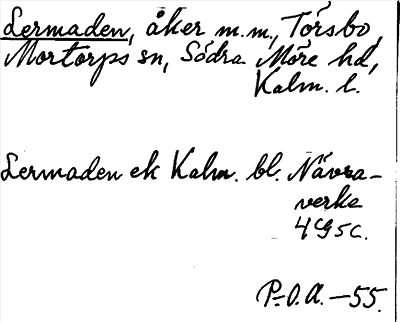 Lermaden, åker m.m., Törsbo,
Mortorps sn, Södra Möre hd,
Kalm. l.
Lermaden ek Kalm. bl. Nävra-
verke
4G5c.
P-O.A.-55.